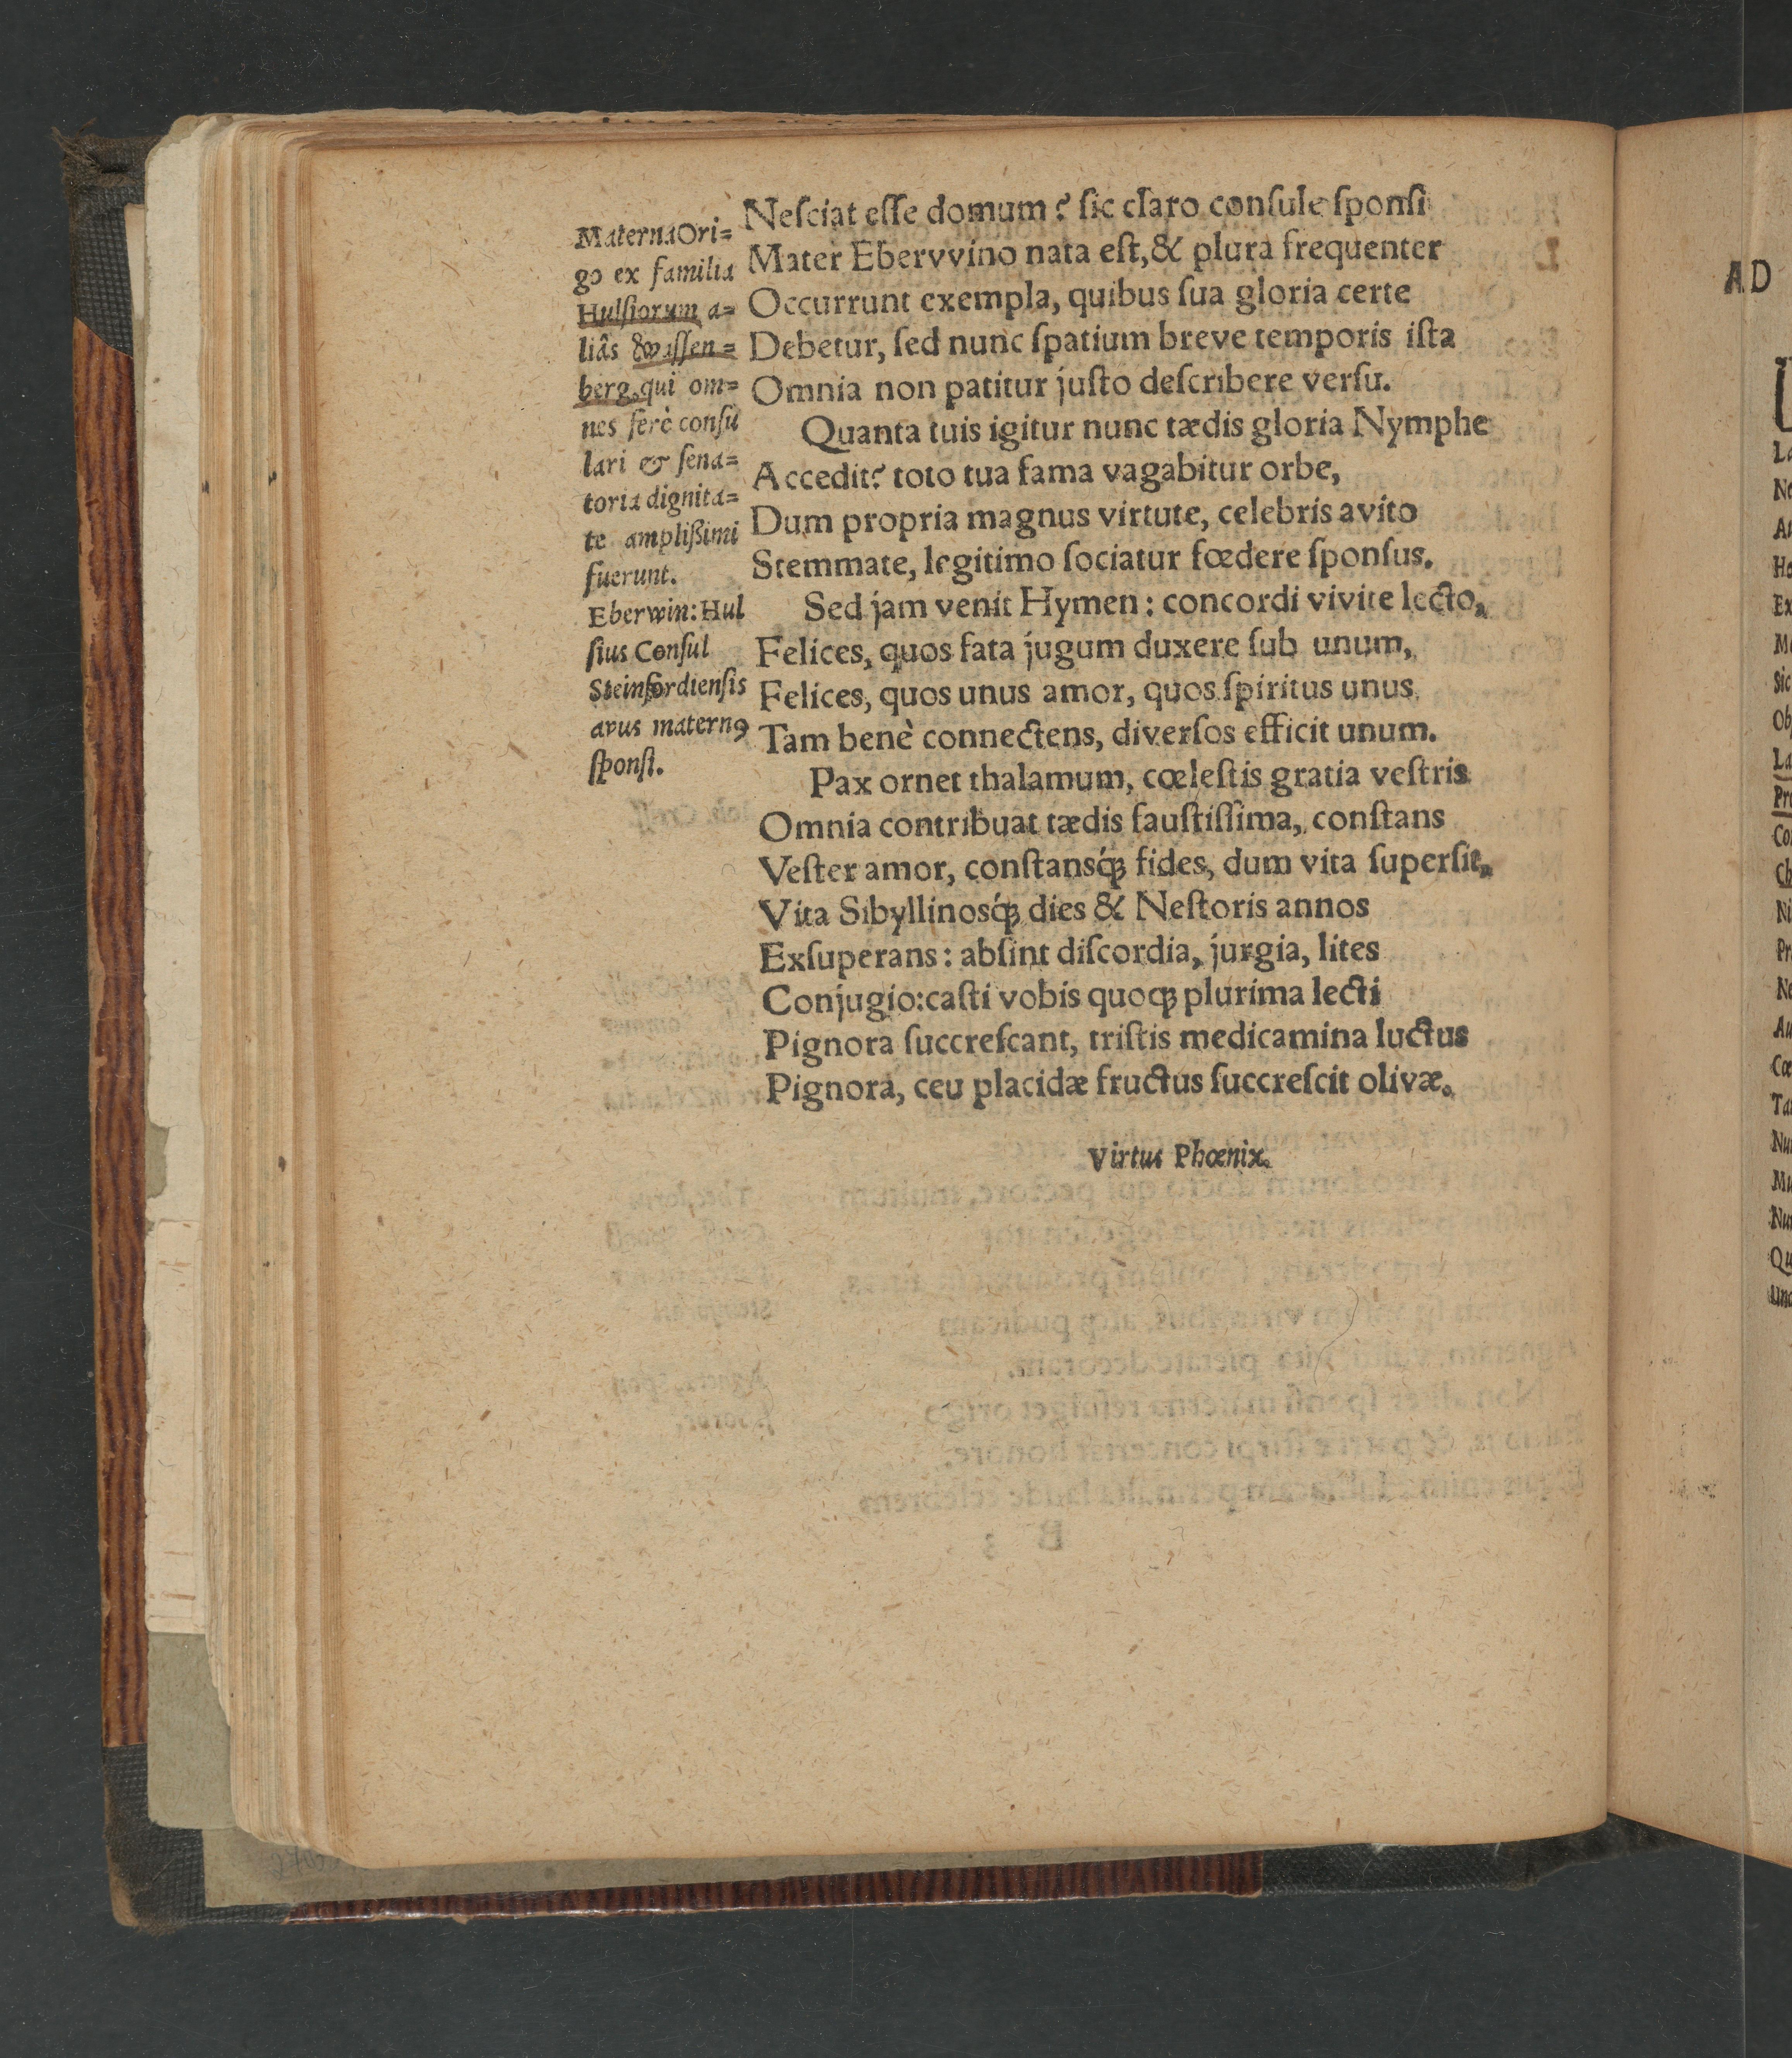 Neſciat eſſe domum? ſic claro conſule ſponſi
Mater Ebervvino nata eſt, & plura frequenter
Occurrunt exempla, quibus ſua gloria certe
Debetur, ſed nunc ſpatium breve temporis iſta
Omnia non patitur juſto deſcribere verſu.
Quanta tuis igitur nunc tædis gloria Nymphe
Accedit? toto tua fama vagabitur orbe,
Dum propria magnus virtute, celebris avito
Stemmate, legitimo ſociatur fœdere ſponſus.
Sed jam venit Hymen: concordi vivite lecto,
Felices, quos fata jugum duxere ſub unum,
Felices, quos unus amor, quos ſpiritus unus
Tam benè connectens, diverſos efficit unum.
Pax ornet thalamum, cœleſtis gratia veſtris
Omnia contribuat tædis fauſtiſſima, conſtans
Veſter amor, conſtansq́; fides, dum vita ſuperſit,
Vita Sibyllinosq́; dies & Neſtoris annos
Exſuperans: abſint diſcordia, jurgia, lites
Conjugio: caſti vobis quoq; plurima lecti
Pignora ſuccreſcant, triſtis medicamina luctus
Pignora, ceu placidæ fructus ſuccreſcit olivæ.
Virtus Phœnix.
Materna Ori=
go ex familia
Hulſiorum a=
liâs & waſſen=
berg, qui om=
nes ferè conſu
lari & ſena=
toria dignita=
te amplißimi
fuerunt.
Eberwin: Hul
ſius Conſul
Steinfordienſis
avus maternꝯ
ſponſi.
AD